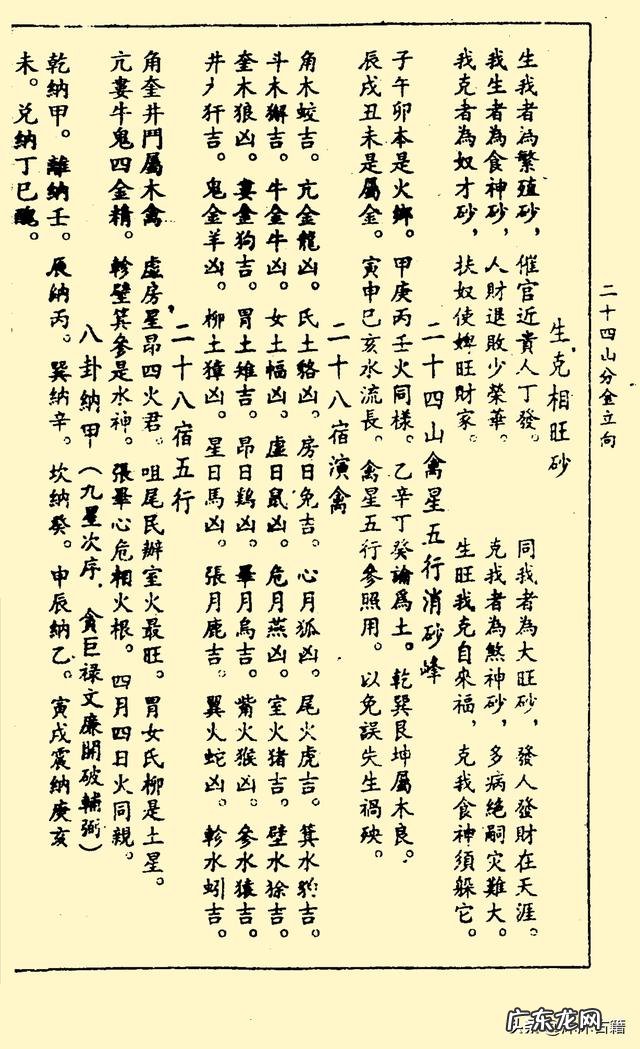 二十四山分金立向
生克相旺砂
生我者為繁殖砂，催官近貴人丁發。同我者為大旺砂，發人發財在天涯。
我生者為食神砂，人財退敗少榮華。克我者為煞神砂，多病絕嗣灾難大。
我克者為奴才砂，扶奴使婢旺財家。生旺我克自來福，克我食神須躲它。
二十四山禽星五行消砂峰
子午卯本是火鄉。甲庚丙壬火同樣。乙辛丁癸論爲土。乾巽艮坤屬木良。
辰戌丑未是屬金。寅申巳亥水流長。禽星五行參照用。以免誤失生禍殃。
二十八宿演禽
角木蛟吉。亢金龍凶。氐土貉凶。房日兔吉。心月狐凶。尾火虎吉。箕水豹吉。
斗木獬吉。牛金牛凶。女土蝠凶。虛日鼠凶。危月燕凶。室火猪吉。壁水㺄吉。
奎木狼凶。婁金狗吉。胃土雉吉。昴日鷄凶。畢月烏吉。觜火猴凶。參水猿吉。
井木犴吉。鬼金羊凶。柳土獐凶。星日馬凶。張月鹿吉。翼火蛇凶。軫水蚓吉。
二十八宿五行
角奎井鬥屬木禽 虛房星昴四火君。咀尾民辦室火最旺。胃女氏柳是土星。
亢婁牛鬼四金精。軫壁箕參是水神。張畢心危相火根。四月四日火同親。
八卦納甲（九星次序．貪巨禄文廉開破輔弼）
乾納甲。離納壬。辰納丙。巽納辛。坎納癸。申辰納乙。寅戌震納庚亥
未。兑納丁巳醜。
广东龙网